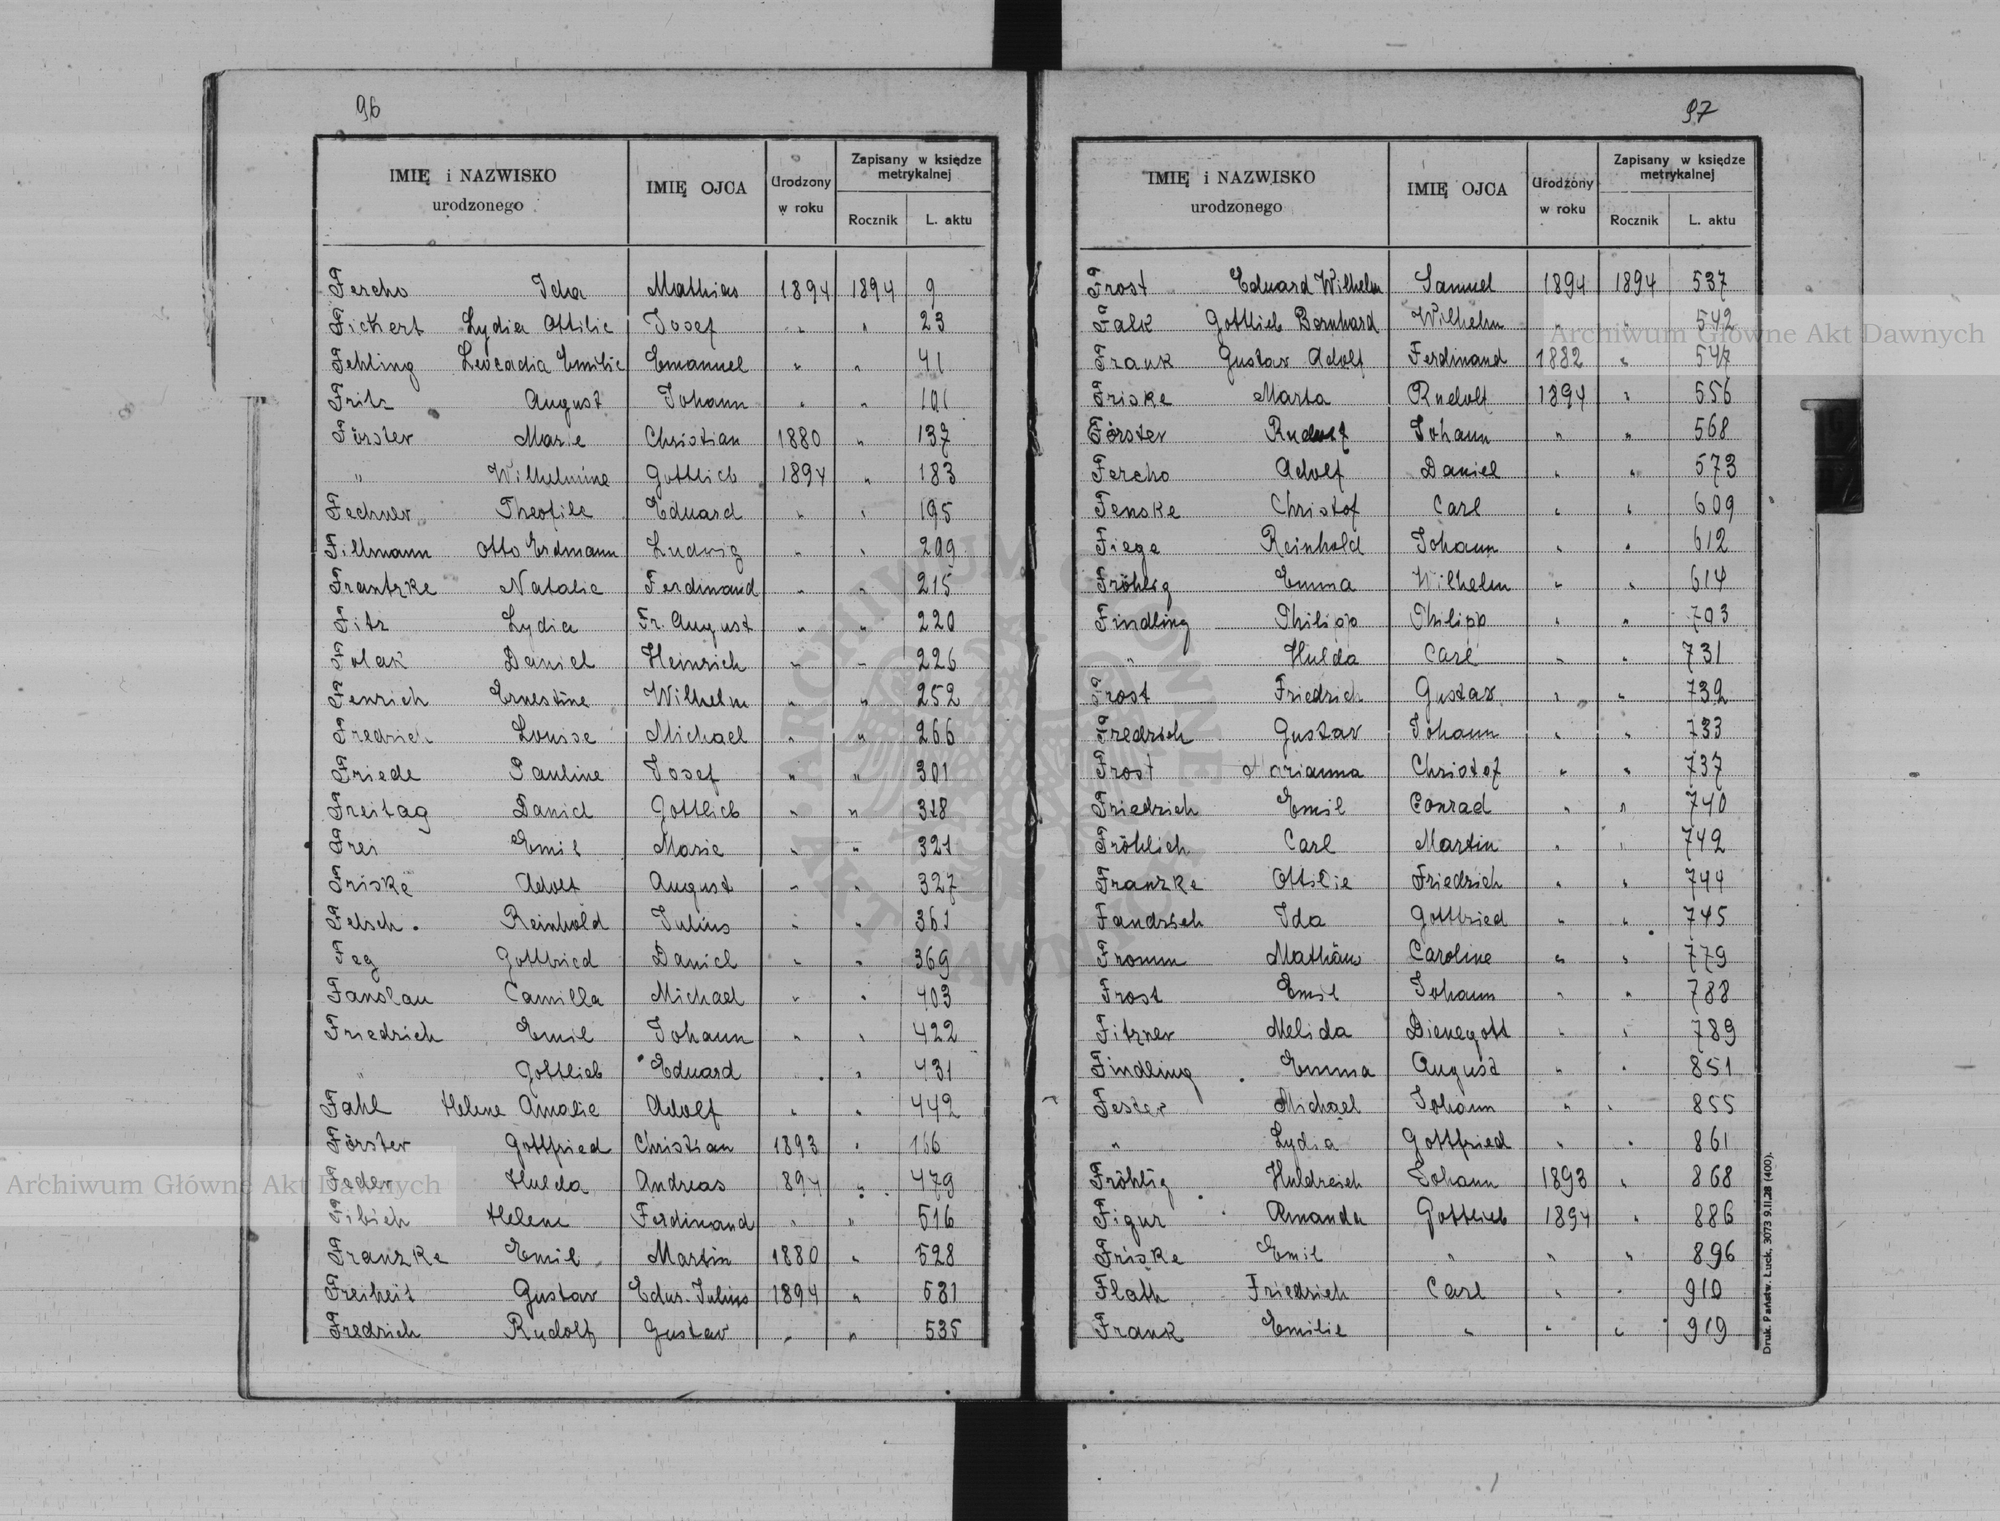 96
IMIĘ i NAZWISKO urodzonego IMIĘ OJCA Urodzony w roku Zapisany w księdze metrykalnej Rocznik L. aktu
Fercho Ida Mathias 1894 1894 9
Fickert Lydia Ottilie Josef " " 23
Fehling Leocadia Emilie Emanuel " " 41
Fritz August Johann " " 101
Förster Marie Christian 1880 " 137
" Wilhelmine Gottlieb 1894 " 183
Fechner Theofile Eduard " " 195
Fillmann Otto Erdmann Ludwig " " 209
Frantzke Natalie Ferdinand " " 215
Fitz Lydia Fr. August " " 220
Folak Daniel Heinrich " " 226
Fenrich Ernestine Wilhelm " " 252
Fredrich Louise Michael " " 266
Friede Pauline Josef " " 301
Freitag Daniel Gottlieb " " 318
Frei Emil Marie " " 321
Friske Adolf August " " 327
Felsch. Reinhold Julius " " 361
Feg Gottfried Daniel " " 369
Fanslau Camilla Michael " " 403
Friedrich Emil Johann " " 422
" Gottlieb Eduard " " 431
Fahl Helene Amalie Adolf " " 442
Förster Gottfried Christian 1893 "
Feder Hulda Andreas 894 " 479
Fibich Helene Ferdinand " " 516
Franzke Emil Martin 1880 " 528
Freiheit Gustav Edu. Julius 1894 " 531
Fredrich Rudolf Gustav " " 535
97
IMIĘ i NAZWISKO urodzonego IMIĘ OJCA Urodzony w roku Zapisany w księdze metrykalnej Rocznik L. aktu
Frost Eduard Wilhelm Samuel 1894 1894 537
Falk Gottlieb Bernhard Wilhelm " " 542
Frank Gustav Adolf Ferdinand 1882 " 547
Friske Marta Rudolf 1894 " 556
Förster Rudolf Johann " " 568
Fercho Adolf Daniel " " 573
Fenske Christof Carl " " 609
Fiege Reinhold Johann " " 612
Fröhlig Emma Wilhelm " " 614
Findling Philipp Philipp " " 703
" Hulda Carl " " 731
Frost Friedrich Gustav " " 732
Fredrich Gustav Johann " " 733
Frost Marianna Christof " " 737
Friedrich Emil Conrad " " 740
Fröhlich Carl Martin " " 742
Franzke Ottilie Friedrich " " 744
Fandrich Ida Gottfried " " 745
Fromm Mathäus Caroline " " 779
Frost Emil Johann " " 788
Fitzner Melida Dienegott " " 789
Findling Emma August " " 851
Fester Michael Johann " " 855
" Lydia Gottfried " " 861
Fröhlig Huldreich Johann 1893 " 868
Figur Amanda Gottlieb 1894 " 886
Friske Emil " " " 896
Flath Friedrich Carl " " 910
Frank Emilie " " " 919
Druk. Państw. Łuck, 3073 9.II.28 (400).
Archiwum Główne Akt Dawnych
Archiwum Główne Akt Dawnych
ARCHIWUM GŁÓWNE AKT DAWNYCH